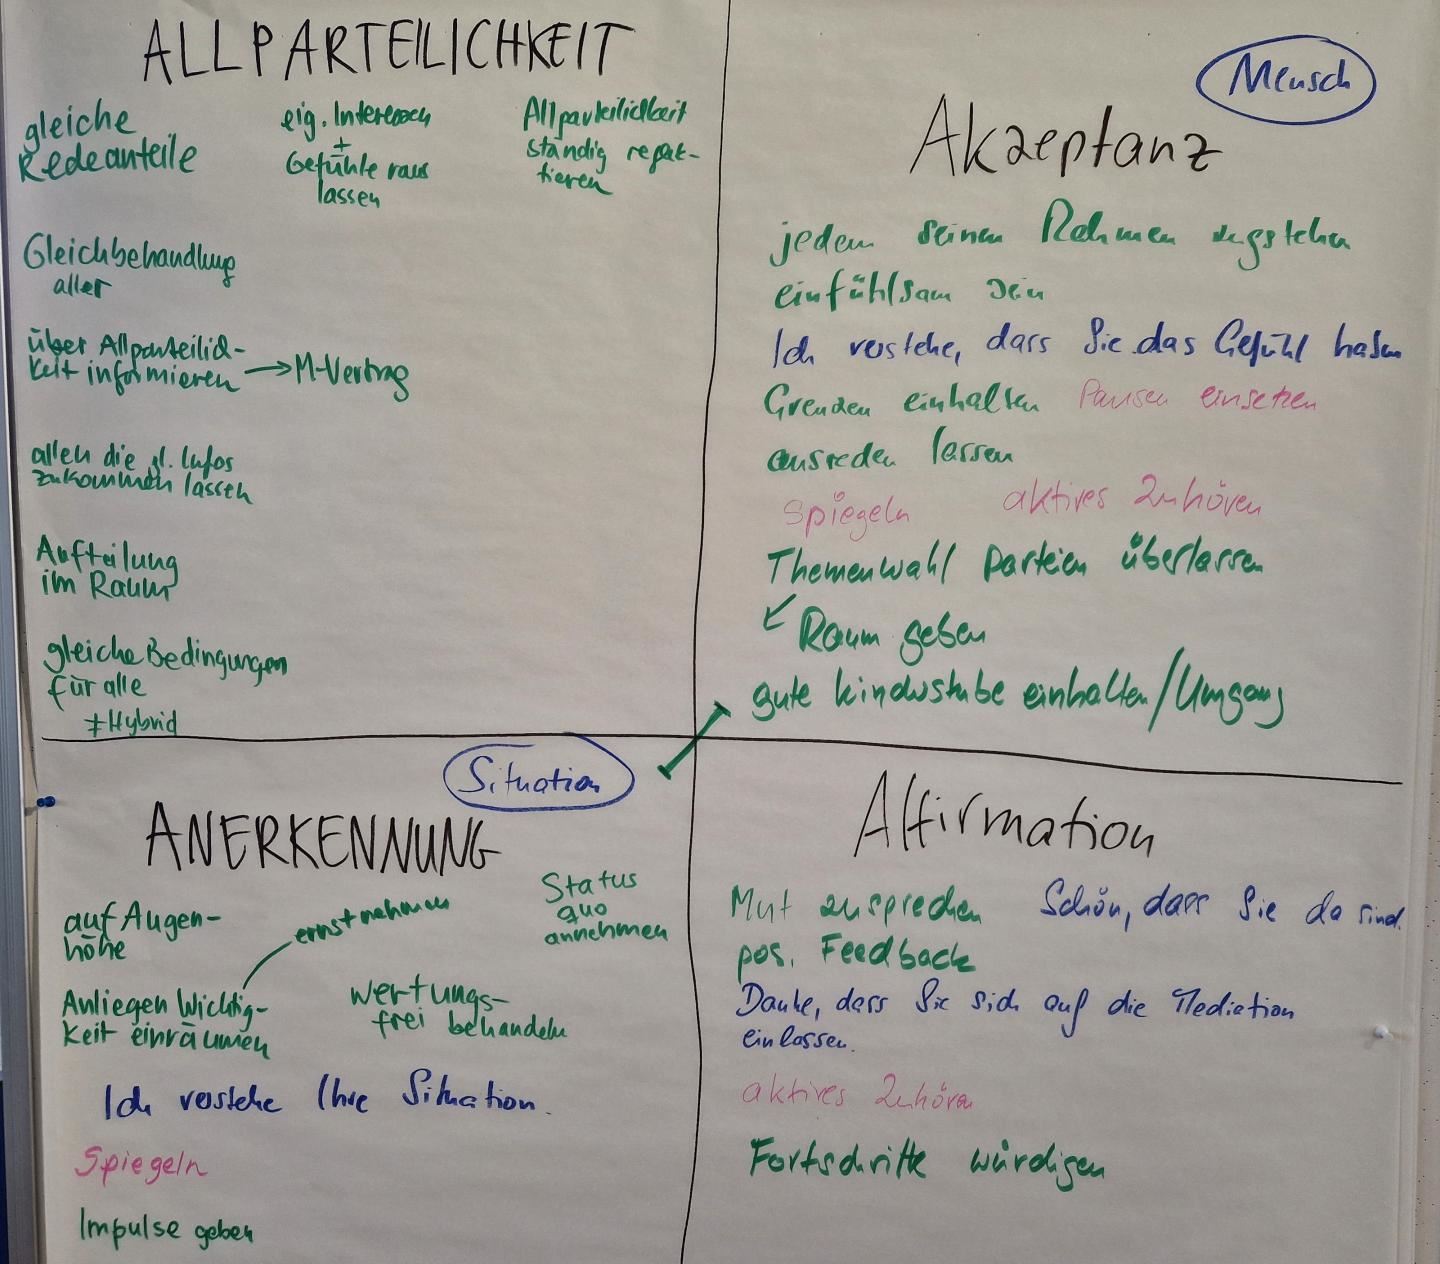 ALLPARTEILICHKEIT
gleiche
Redeanteile
eig. Interessen
+
Gefühle raus
lassen
Allparteilichkeit
ständig
tieren
Gleichbehandlung
aller
über Allparteilich-
keit informieren → M-Vertrag
allen die gl. Infos
zukommen lassen
Aufteilung
im Raum
gleiche Bedingungen
für alle
≠ Hybrid
Mensch
Akzeptanz
jedem seinen Rahmen zugstehen
einfühlsam sein
Ich verstehe, dass Sie das Gefühl haben
Grenzen einhalten Pausen einsetzen
ausreden lassen
Spiegeln aktives Zuhören
Themenwahl Parteien überlassen
↙ Raum geben
gute Kinderstube einhalten/Umgang
Situation
ANERKENNUNG
auf Augen-
höhe
ernst nehmen
Status
quo
annehmen
Anliegen Wichtig-
keit einräumen
wertungs-
frei behandeln
Ich verstehe Ihre Situation.
Spiegeln
Impulse geben
Affirmation
Mut zusprechen Schön, dass Sie da sind.
pos. Feedback
Danke, dass Sie sich auf die Mediation
einlassen.
aktives Zuhören
Fortschritte würdigen